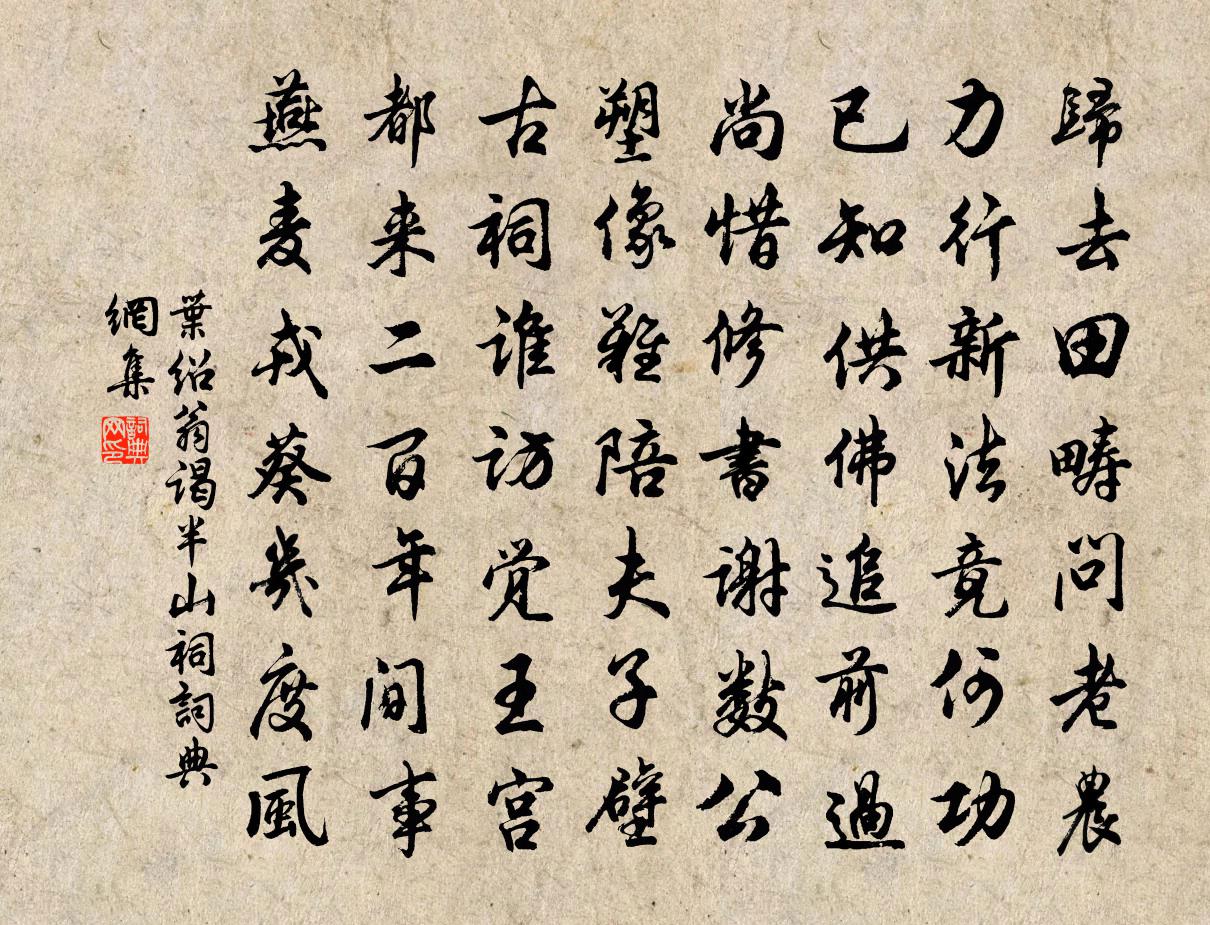 歸去田疇問老農
力行新法竟何功
已知供佛追前過
尚惜修書謝數公
塑像難陪夫子壁
古祠誰訪覺王宮
都来二百年间事
燕麦戎葵幾度風
葉紹翁謁半山祠詞典
網集
詞典
网印